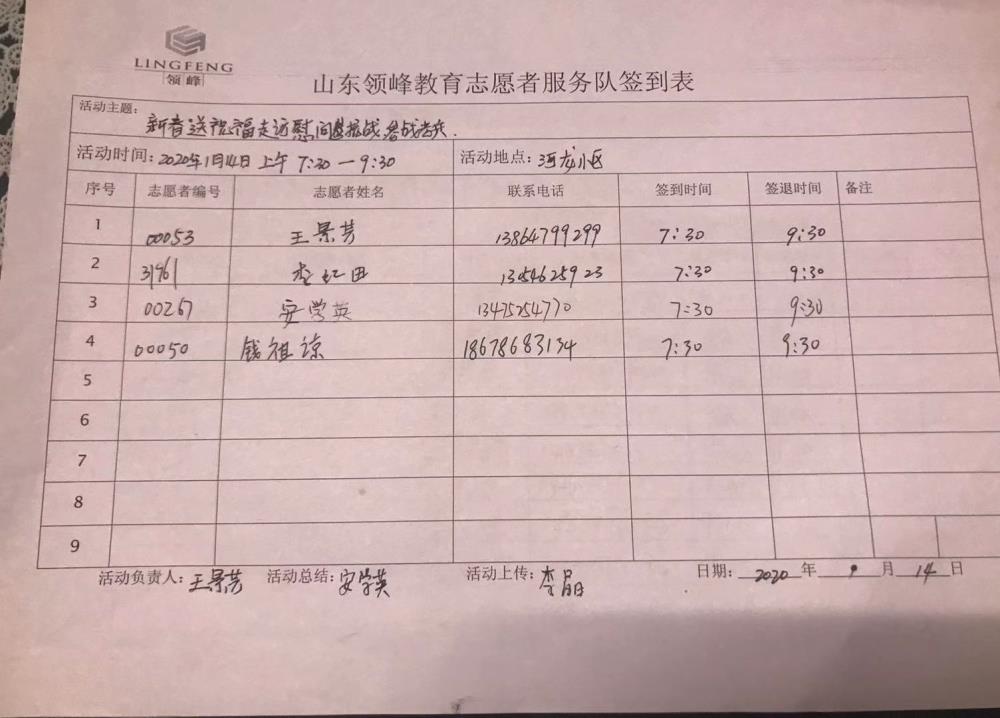 LINGFENG
领峰
山东领峰教育志愿者服务队签到表
活动主题:
新春送祝福走访慰问抗战老战士.
活动时间: 2020年1月14日 上午 7:30 — 9:30 活动地点: 河龙小区
序号 志愿者编号 志愿者姓名 联系电话 签到时间 签退时间 备注
1 00053 王景芳 13864799299 7:30 9:30
2 31961 李红田 13546259 23 7:30 9:30
3 00267 安学英 13475254770 7:30 9:30
4 00050 钱祖谅 18678683134 7:30 9:30
5
6
7
8
9
活动负责人: 王景芳 活动总结: 安学英 活动上传: 李晶 日期: 2020 年 月 14 日